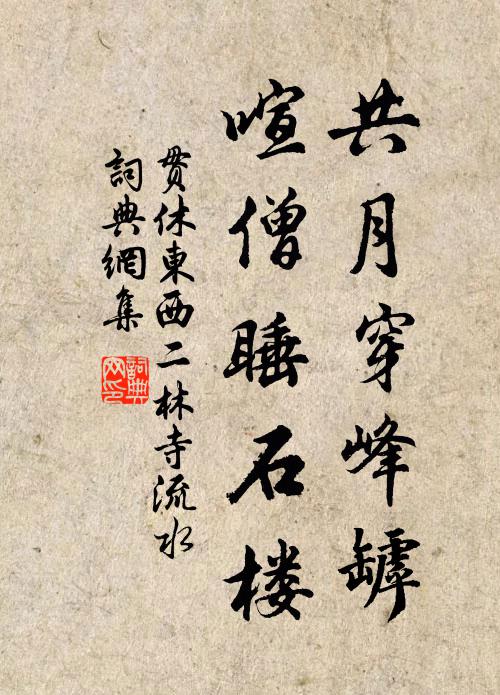 共月穿峰罅
喧僧睡石楼
贯休東西二林寺流水
詞典網集
詞典网印